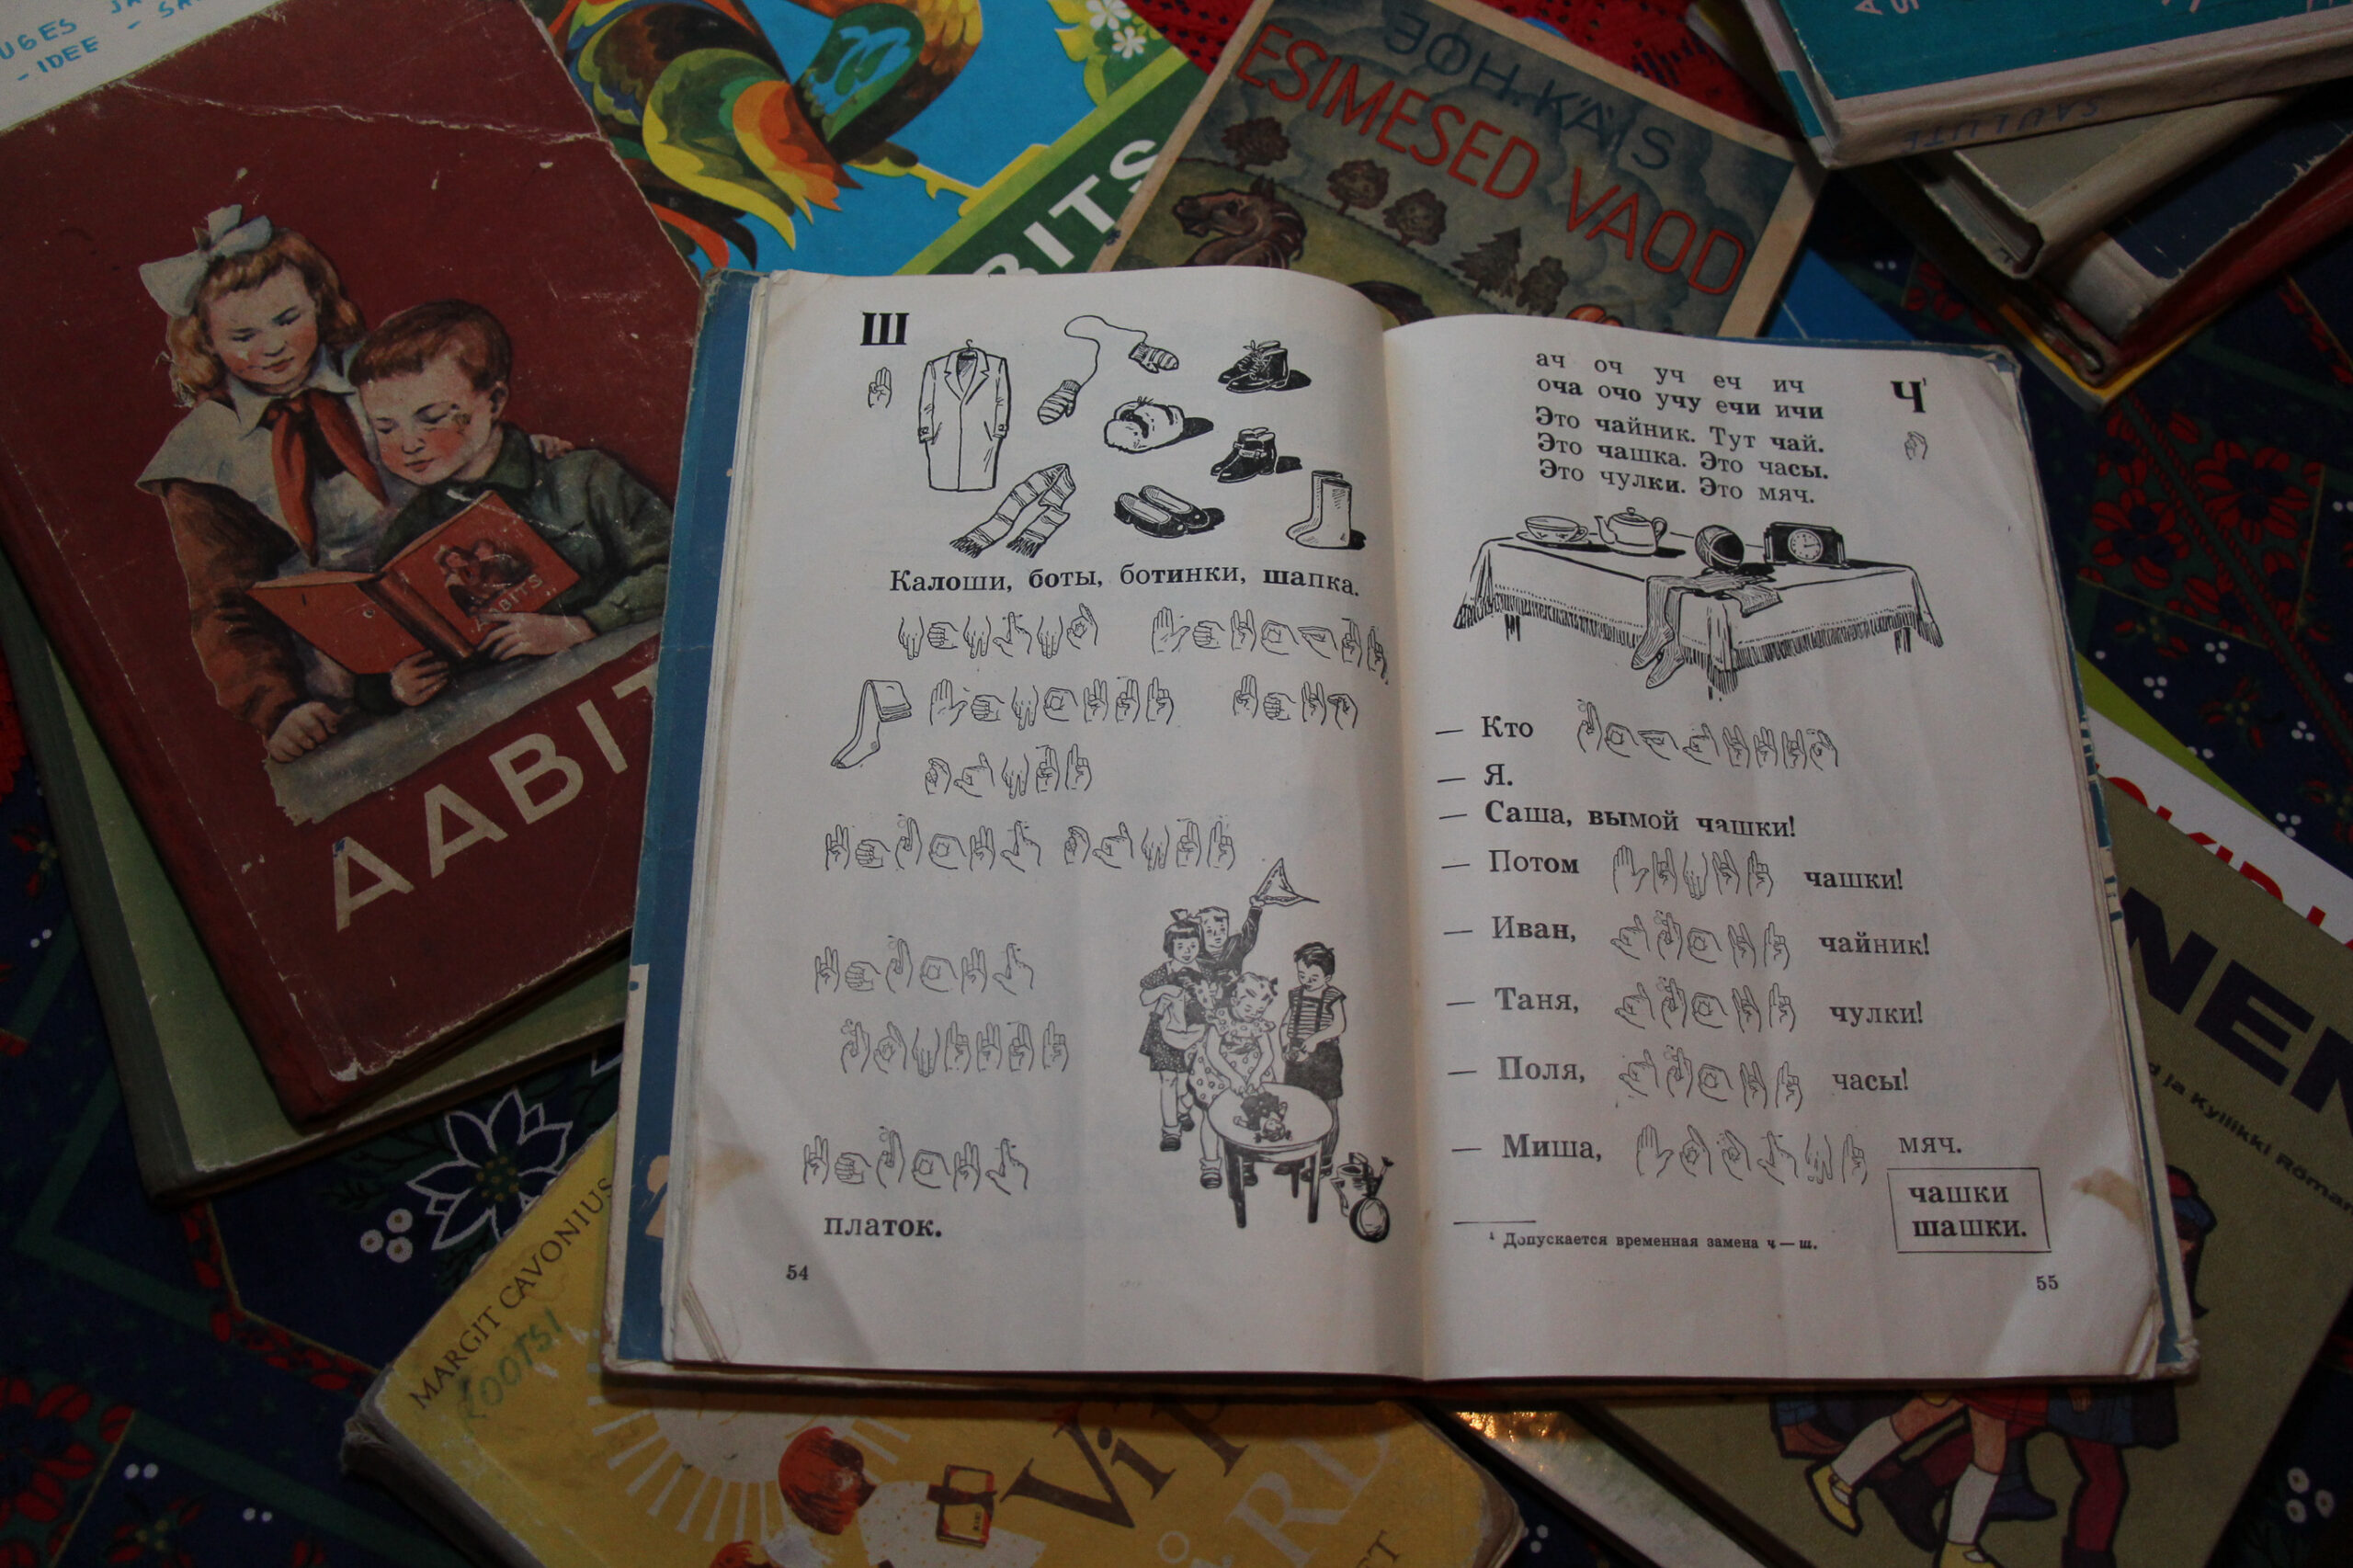 UGES
- IDEE -
AABIT
"AABITS"
BITS
JOH. KÄIS
ESIMESED VAOD
SAULUTE
Ш
Калоши, боты, ботинки, шапка.
платок.
54
ач оч уч еч ич
оча очо учу ечи ичи
Ч¹
Это чайник. Тут чай.
Это чашка. Это часы.
Это чулки. Это мяч.
— Кто
— Я.
— Саша, вымой чашки!
— Потом чашки!
— Иван, чайник!
— Таня, чулки!
— Поля, часы!
— Миша, мяч.
чашки
шашки.
¹ Допускается временная замена ч — ш.
55
MARGIT CAVONIUS
ROOTSI
Vi på
NEN
ja Kyllikki Röman